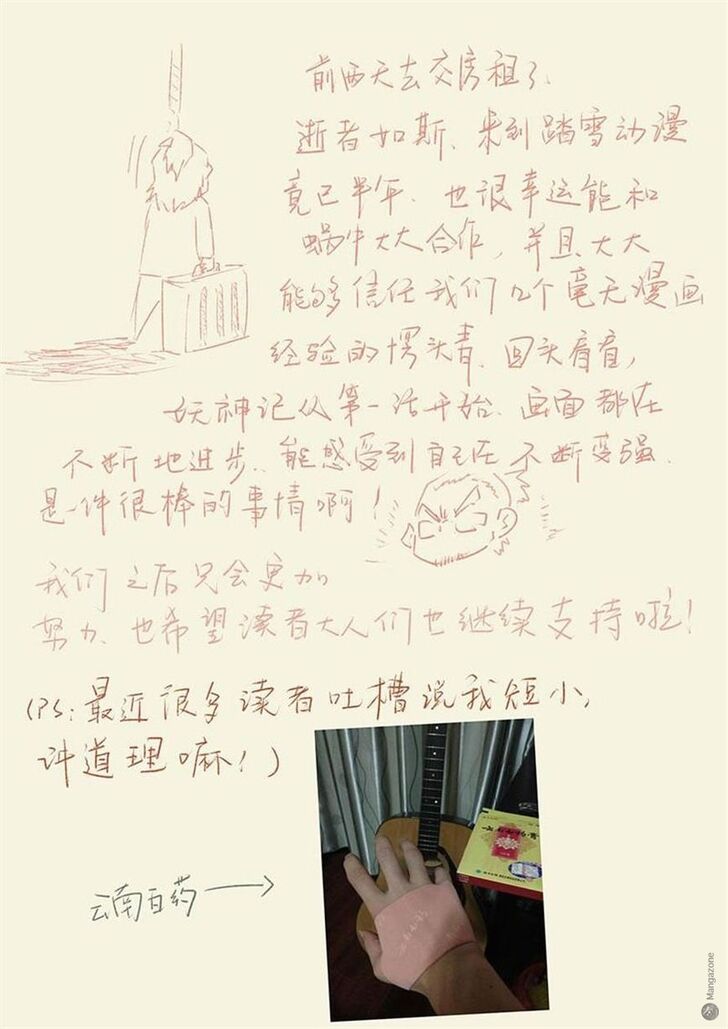 前两天去交房租了、
逝者如斯、来到踏雪动漫
竟已半年、也很幸运能和
蜗牛大大合作，并且大大
能够信任我们几个毫无漫画
经验的愣头青、回头看看，
妖神记从第一话开始、画面都在
不断地进步、能感受到自己在不断变强、
是一件很棒的事情啊！
我们之后只会更加
努力、也希望读者大人们也继续支持啦！
(PS:最近很多读者吐槽说我短小，
讲道理嘛！)
云南白药→
云南白药膏
Mangazone